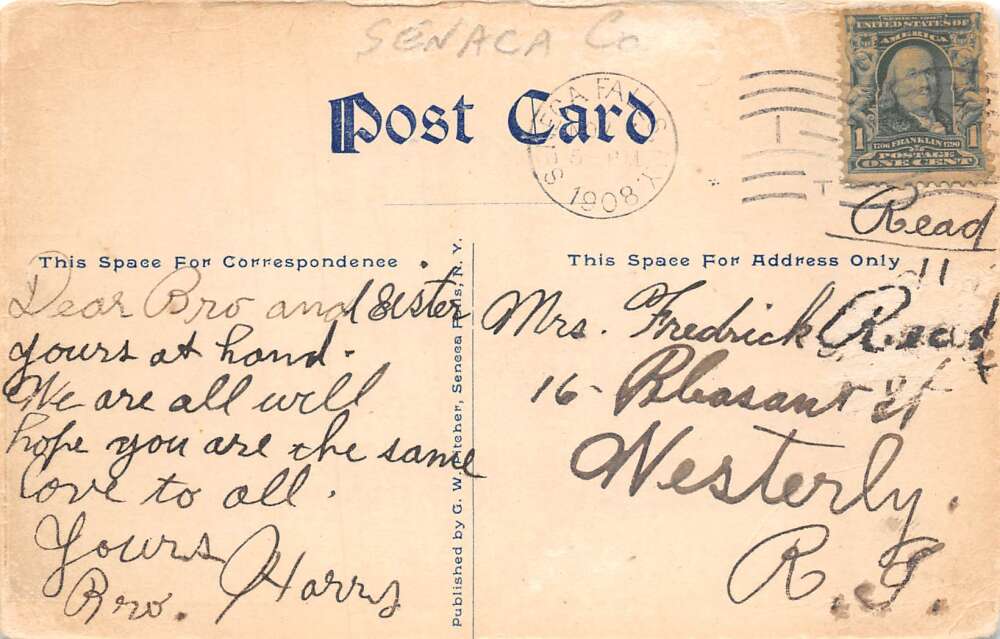 SENACA Co
Post Card
SENECA FALLS N.Y.
1908
SERIES 1902
UNITED STATES OF
AMERICA
1 1706 FRANKLIN 1790 1
POSTAGE
ONE CENT
Read
This Space For Correspondence
Dear Bro and Sister
yours at hand.
We are all well
hope you are the same
love to all.
Yours
Bro. Harry
Published by G. W. Pitcher, Seneca Falls, N. Y.
This Space For Address Only
Mrs. Fredrick Read
16 Pleasant St
Westerly.
R.I.